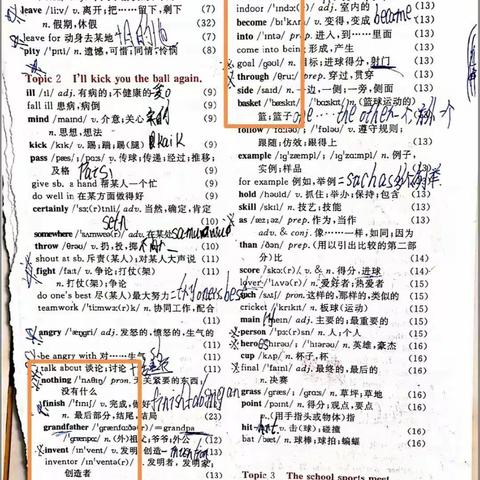 leave /liːv/ v. 离开；把……留下，剩下
n. 假期，休假 (32)
leave for 动身去某地 (7)
pity /ˈpɪti/ n. 遗憾，可惜；同情；怜悯 (7)
Topic 2 I'll kick you the ball again.
ill /ɪl/ adj. 有病的；不健康的 (9)
fall ill 患病，病倒 (9)
mind /maɪnd/ v. 介意；关心 (9)
n. 思想，想法
kick /kɪk/ v. 踢；踹；踢(腿) (9)
pass /pæs/; /pɑːs/ v. 传球；传递；经过；推移；
及格 (9)
give sb. a hand 帮某人一个忙 (9)
do well in 在某方面做得好 (9)
certainly adv. 当然，确定，肯定
(9)
somewhere adv. 在某处 (9)
throw /θrəʊ/ v. 扔，投，掷 (9)
shout at sb. 斥责(某人)；对某人大声说 (9)
fight /faɪt/ v. 争论；打仗(架)
n. 打仗(架)；争论 (11)
do one's best 尽(某人)最大努力 try one's best
teamwork /ˈtiːmwɜːk/ n. 协同工作，配合
(11)
angry /ˈæŋɡri/ adj. 发怒的，愤怒的，生气的
be angry with 对……生气
talk about 谈论；讨论
nothing /ˈnʌθɪŋ/ pron. 无关紧要的东西；
没有什么
finish /ˈfɪnɪʃ/ v. 完成，做好
n. 最后部分，结尾，结局 (23)
grandfather = grandpa
n. (外)祖父；爷爷；外公 (12)
invent /ɪnˈvent/ v. 发明，创造
inventor /ɪnˈventə(r)/ n. 发明者，发明家；
创造者 (13)
indoor /ˈɪndɔː(r)/ adj. 室内的 (13)
become /bɪˈkʌm/ v. 变得，变成 became
into /ˈɪntə/ prep. 进入，到……里面
come into being 形成，产生 (13)
goal /ɡəʊl/ n. 目标；进球得分，射门
through /θruː/ prep. 穿过，贯穿 (13)
side /saɪd/ n. 一边，一侧；一旁，侧面 (13)
basket n. (篮球运动的)
篮；篮子 one … the other 一个 另一个
follow v. 遵守规则；
跟随；仿效；跟得上 (13)
example n. 例子，
实例；样品 (13)
for example 例如，举例 = such as
hold /həʊld/ v. 抓住；举办；保持；包含 (13)
skill /skɪl/ n. 技艺；技能 (13)
as /æz; əz/ prep. 作为，当作
adv. & conj. 像……一样，如同；因为
than /ðən/ prep. (用以引出比较的第二部
分)比 (14)
score v. & n. 得分，进球 (14)
lover /ˈlʌvə(r)/ n. 爱好者；热爱者 (15)
such /sʌtʃ/ pron. 这样的，那样的，类似的
cricket /ˈkrɪkɪt/ n. 板球(运动) (15)
main /meɪn/ adj. 主要的；最重要的 (15)
person n. 人；个人 (15)
hero n. 英雄，豪杰 (15)
cup /kʌp/ n. 杯子，杯 (15)
final /ˈfaɪnl/ adj. 最终的，最后的
n. 决赛 (15)
grass n. 草坪；草地 (15)
point /pɔɪnt/ n. 得分；观点，要点
v. (用手指头或物体)指 (16)
hit /hɪt/ v. 击(球)；碰撞 (16)
bat /bæt/ n. 球棒；球拍；蝙蝠 (16)
Topic 3 The school sports meet